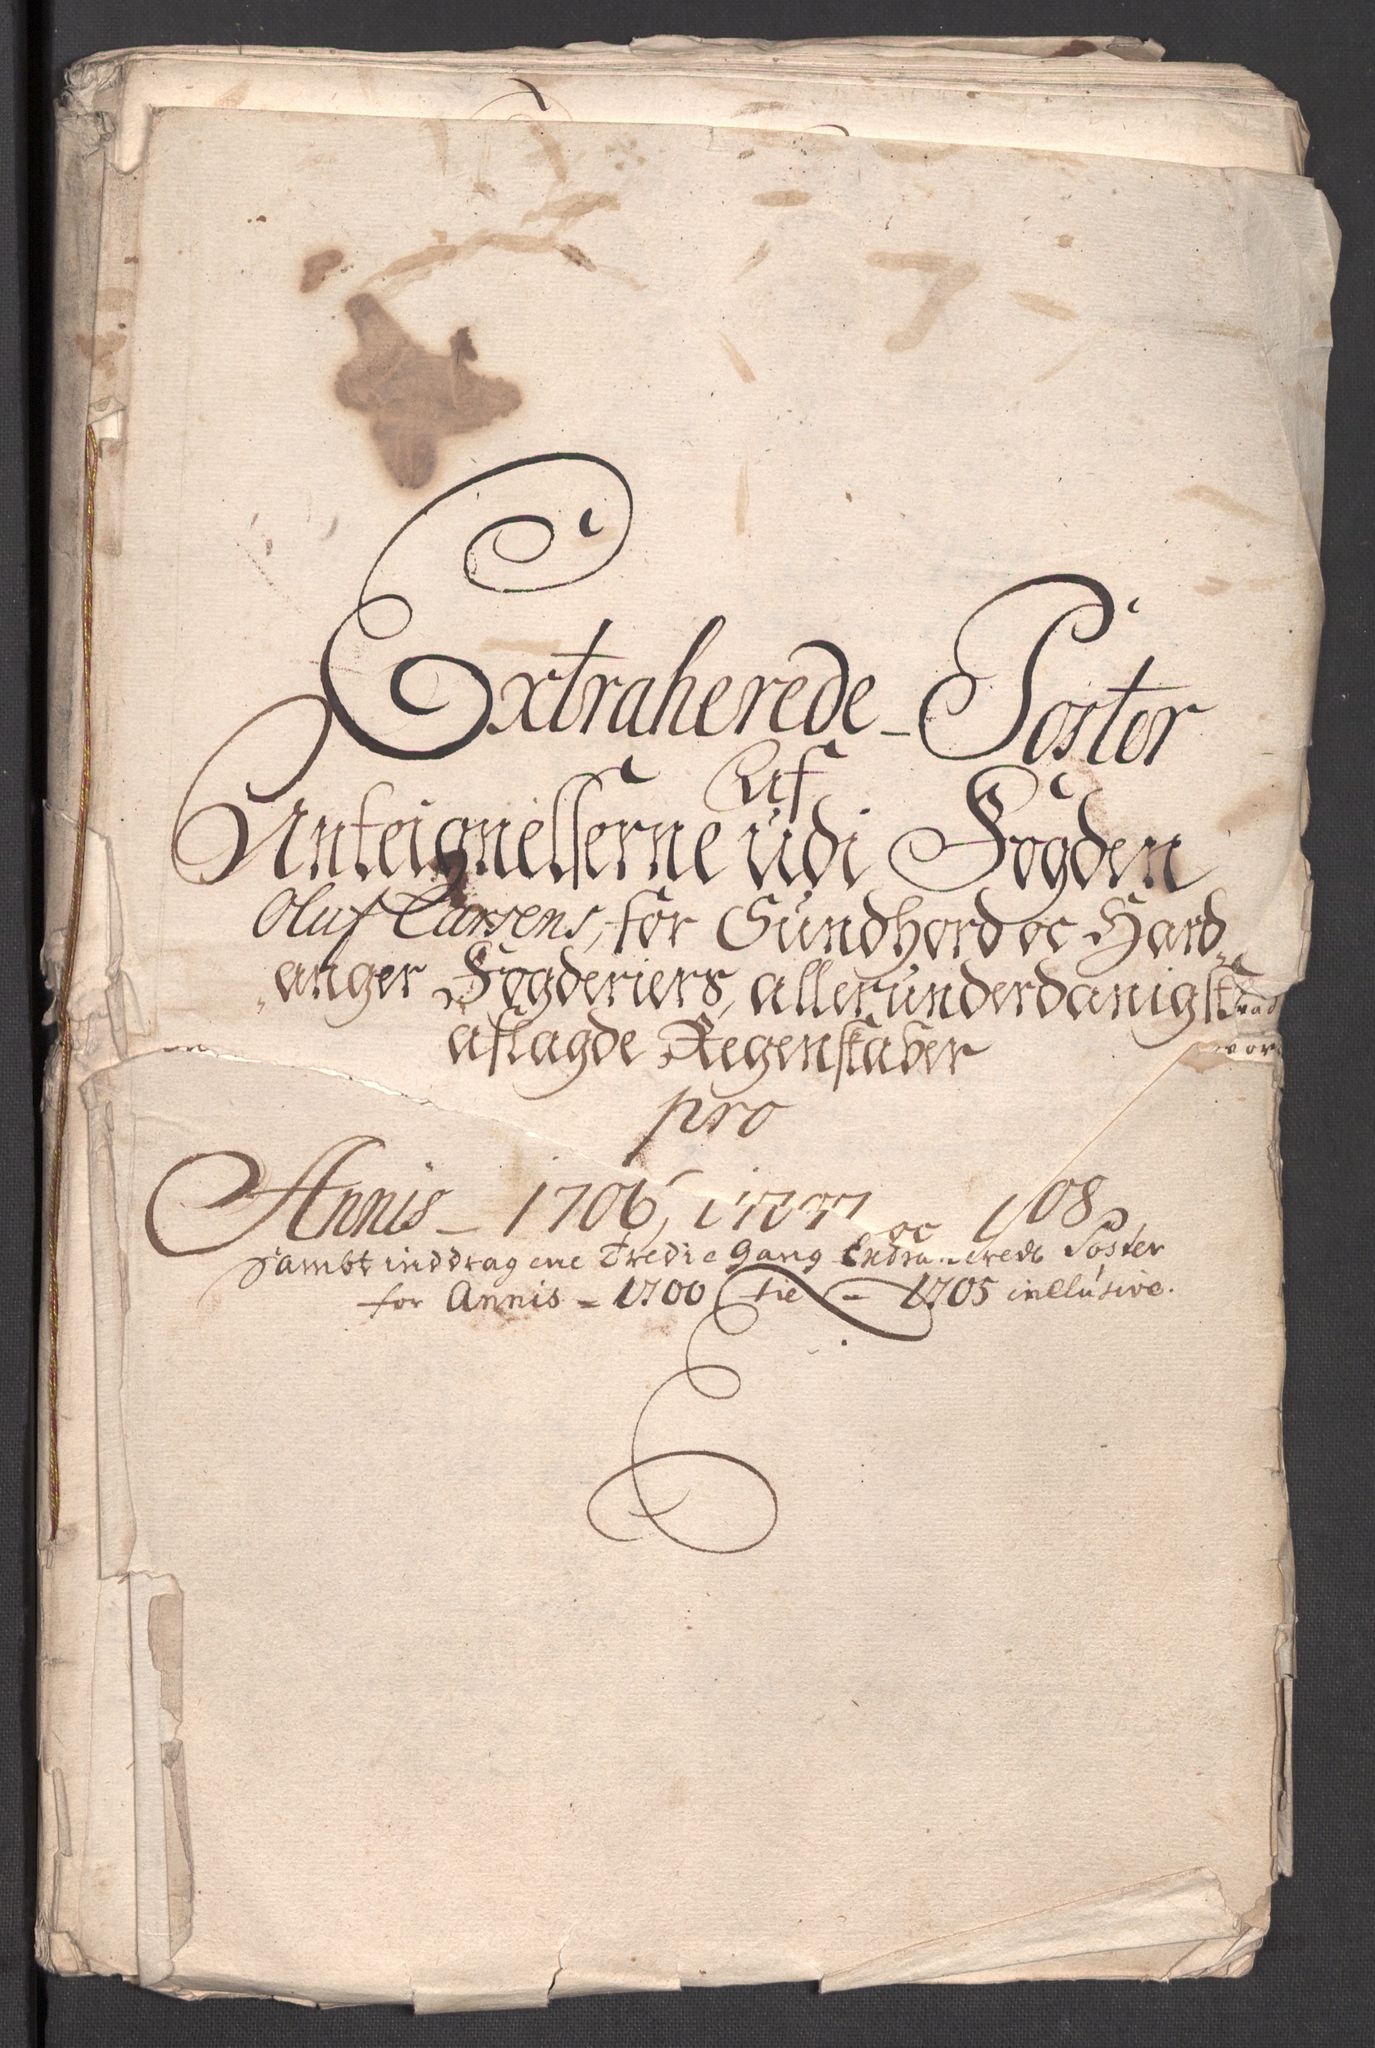 Extraherede - Poster
Af
Anteignelserne udi Fogden
Oluf Larsens, for Sundhord oc Hard„
„anger Fogderiers, allerunderdanigst
aflagde Regenskaber
pro
Annis - 1706, 1707 oc 1708,
sambt inddragene Tredie Gang Extraherede Poster
for Annis - 1700 til - 1705 inclusive.